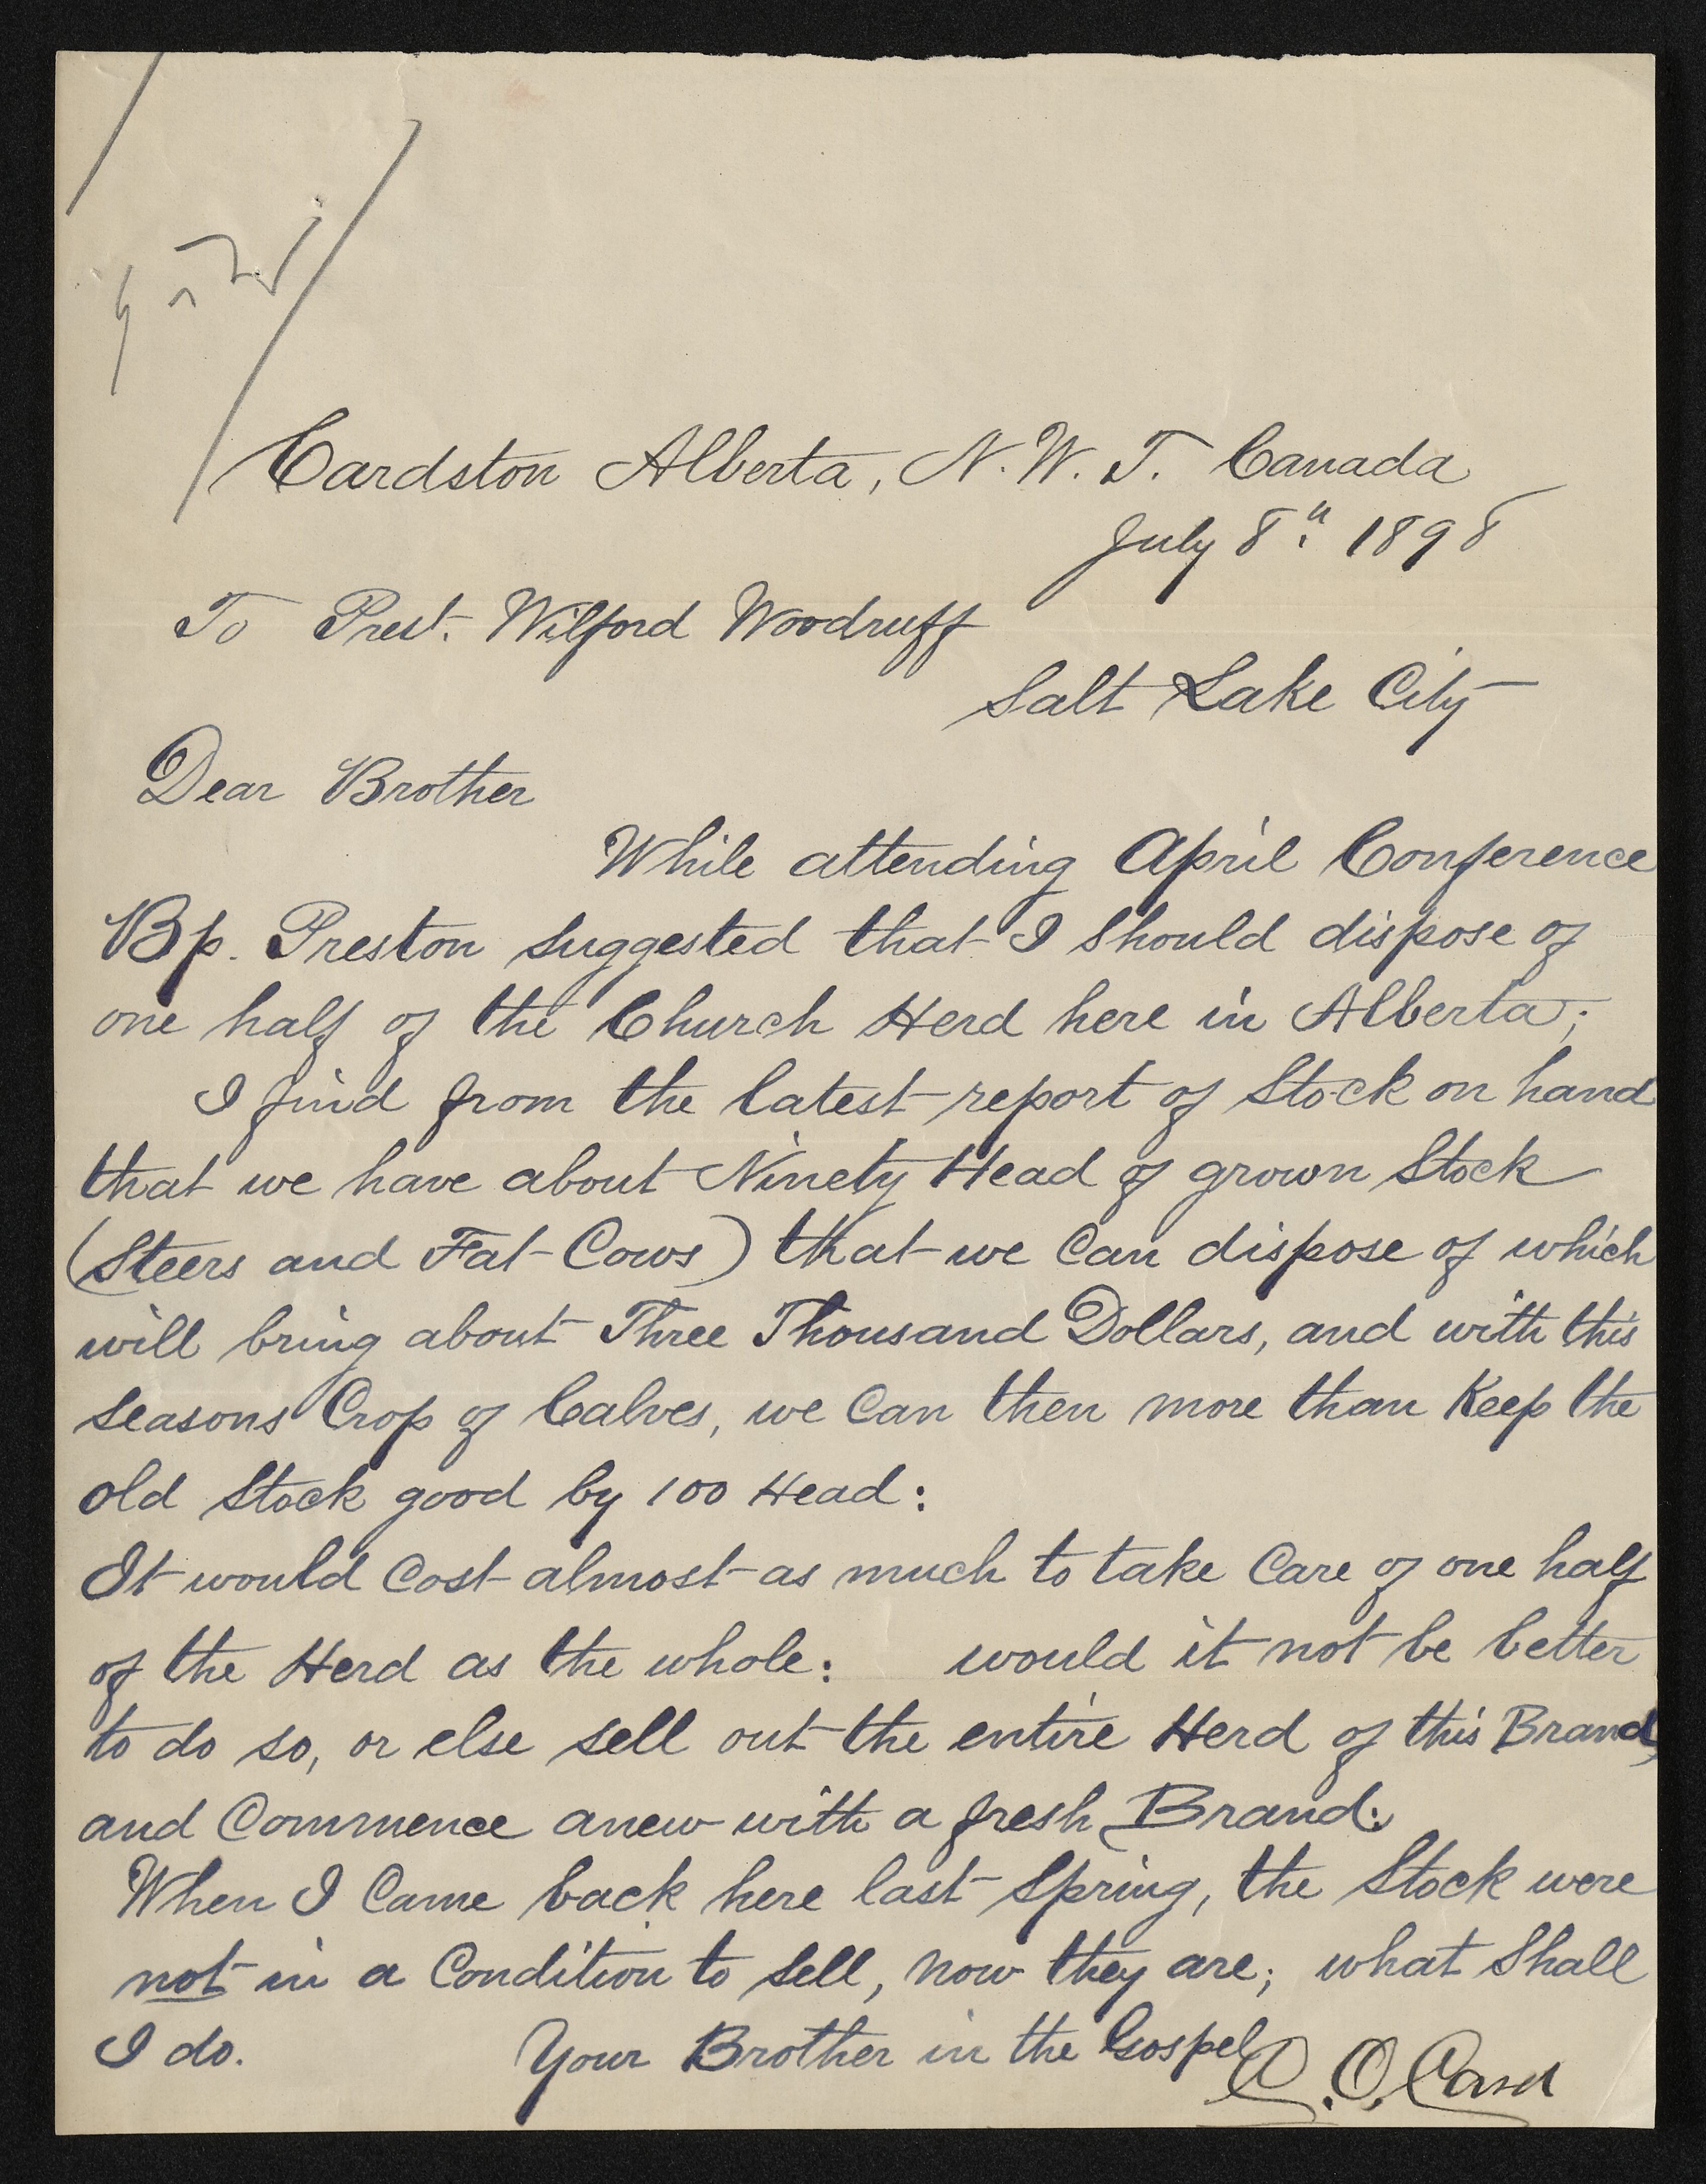 Cardston Alberta, N. W. T. Canada
July 8th 1898
To Prest. Wilford Woodruff
Salt Lake City
Dear Brother
While attending April Conference
Bp. Preston suggested that I should dispose of
one half of the Church Herd here in Alberta;
I find from the latest report of Stock on hand
that we have about Ninety Head of grown Stock
(Steers and Fat Cows) that we Can dispose of which
will bring about Three Thousand Dollars, and with this
seasons Crop of Calves, we Can then more than Keep the
old Stock good by 100 Head:
It would Cost almost as much to take Care of one half
of the Herd as the whole: would it not be better
to do so, or else sell out the entire Herd of this Brand,
and Commence anew with a fresh Brand.
When I Came back here last Spring, the Stock were
not in a Condition to sell, now they are; what Shall
I do. Your Brother in the Gospel
C. O. Card